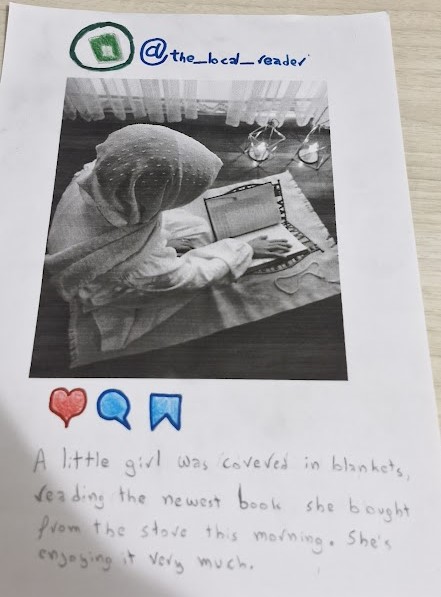 @the_local_reader
A little girl was covered in blankets,
reading the newest book she bought
from the store this morning. She's
enjoying it very much.